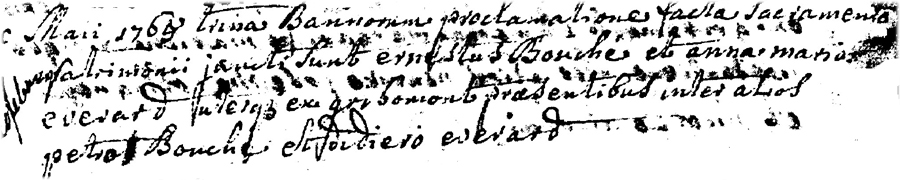 Maii 1764 trina Bannorum proclamatione facta sacramento
matrimonii juncti sunt ernestus Bouché et anna maria
everard uterq ex grihomont præsentibus inter alios
petro Bouché et didiero everard